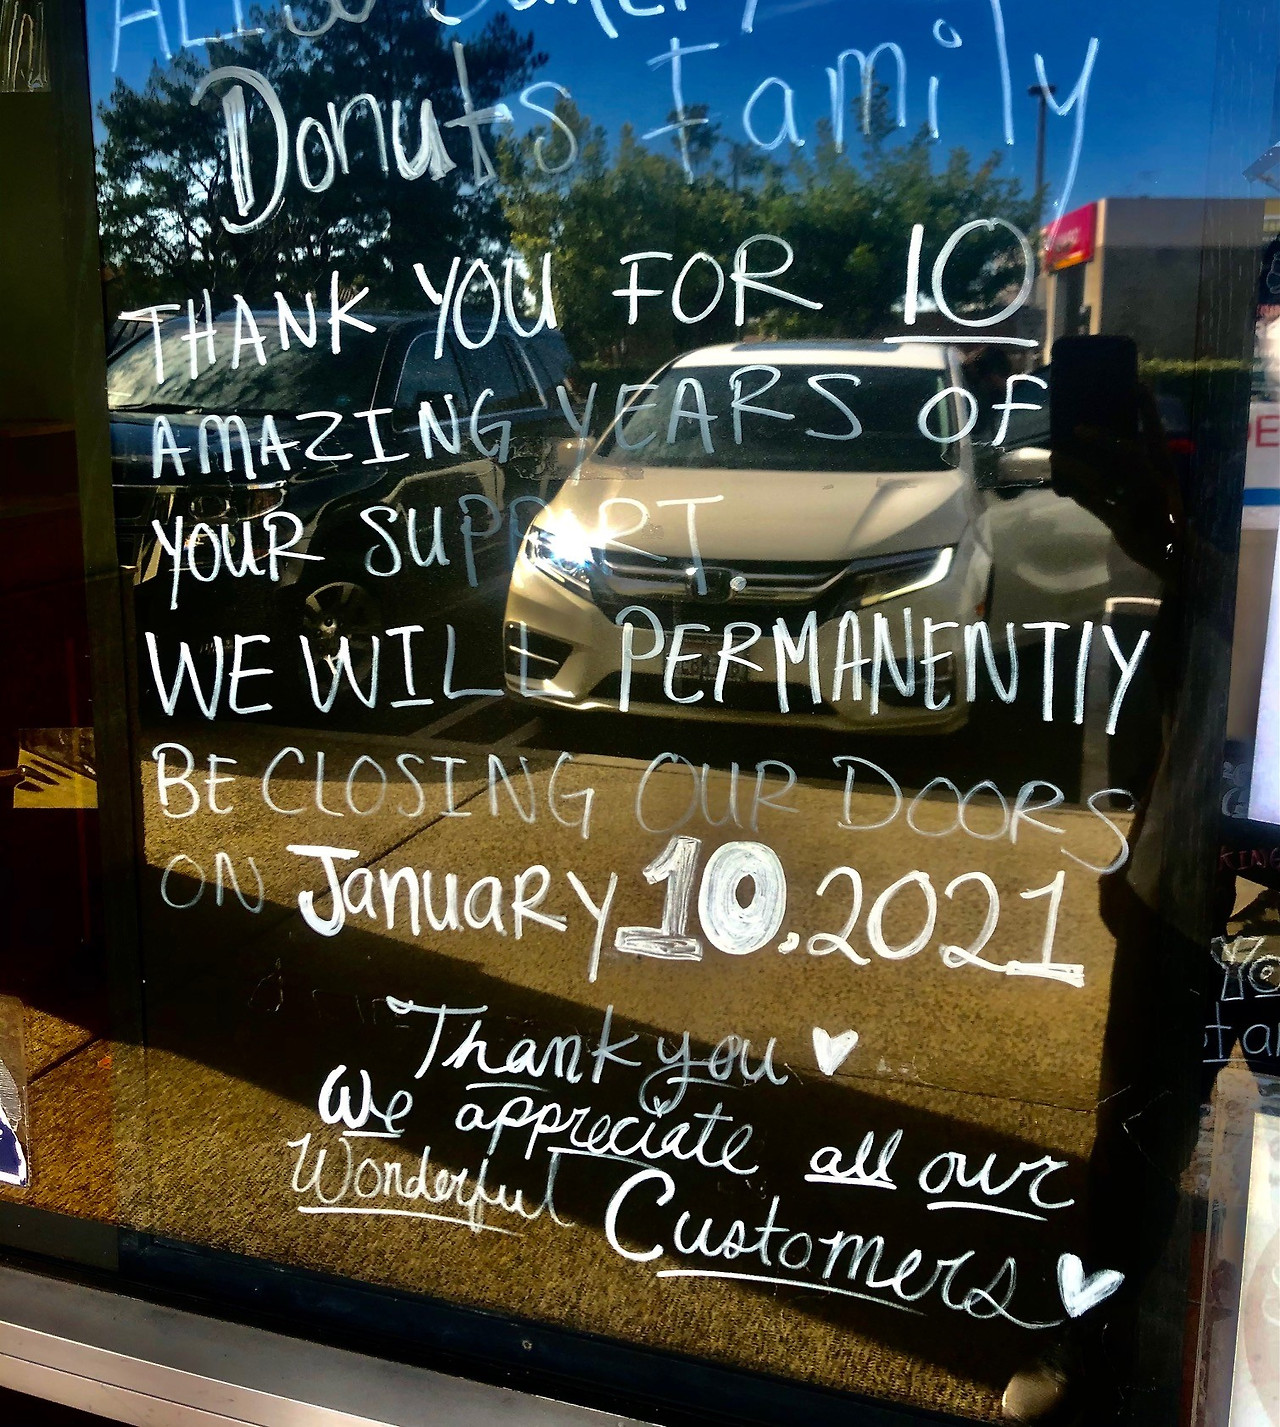 Donuts Family
THANK YOU FOR 10
AMAZING YEARS OF
YOUR SUPPORT.
WE WILL PERMANENTLY
BE CLOSING OUR DOORS
ON JANUARY 10.2021
Thank you
We appreciate all our
Wonderful Customers